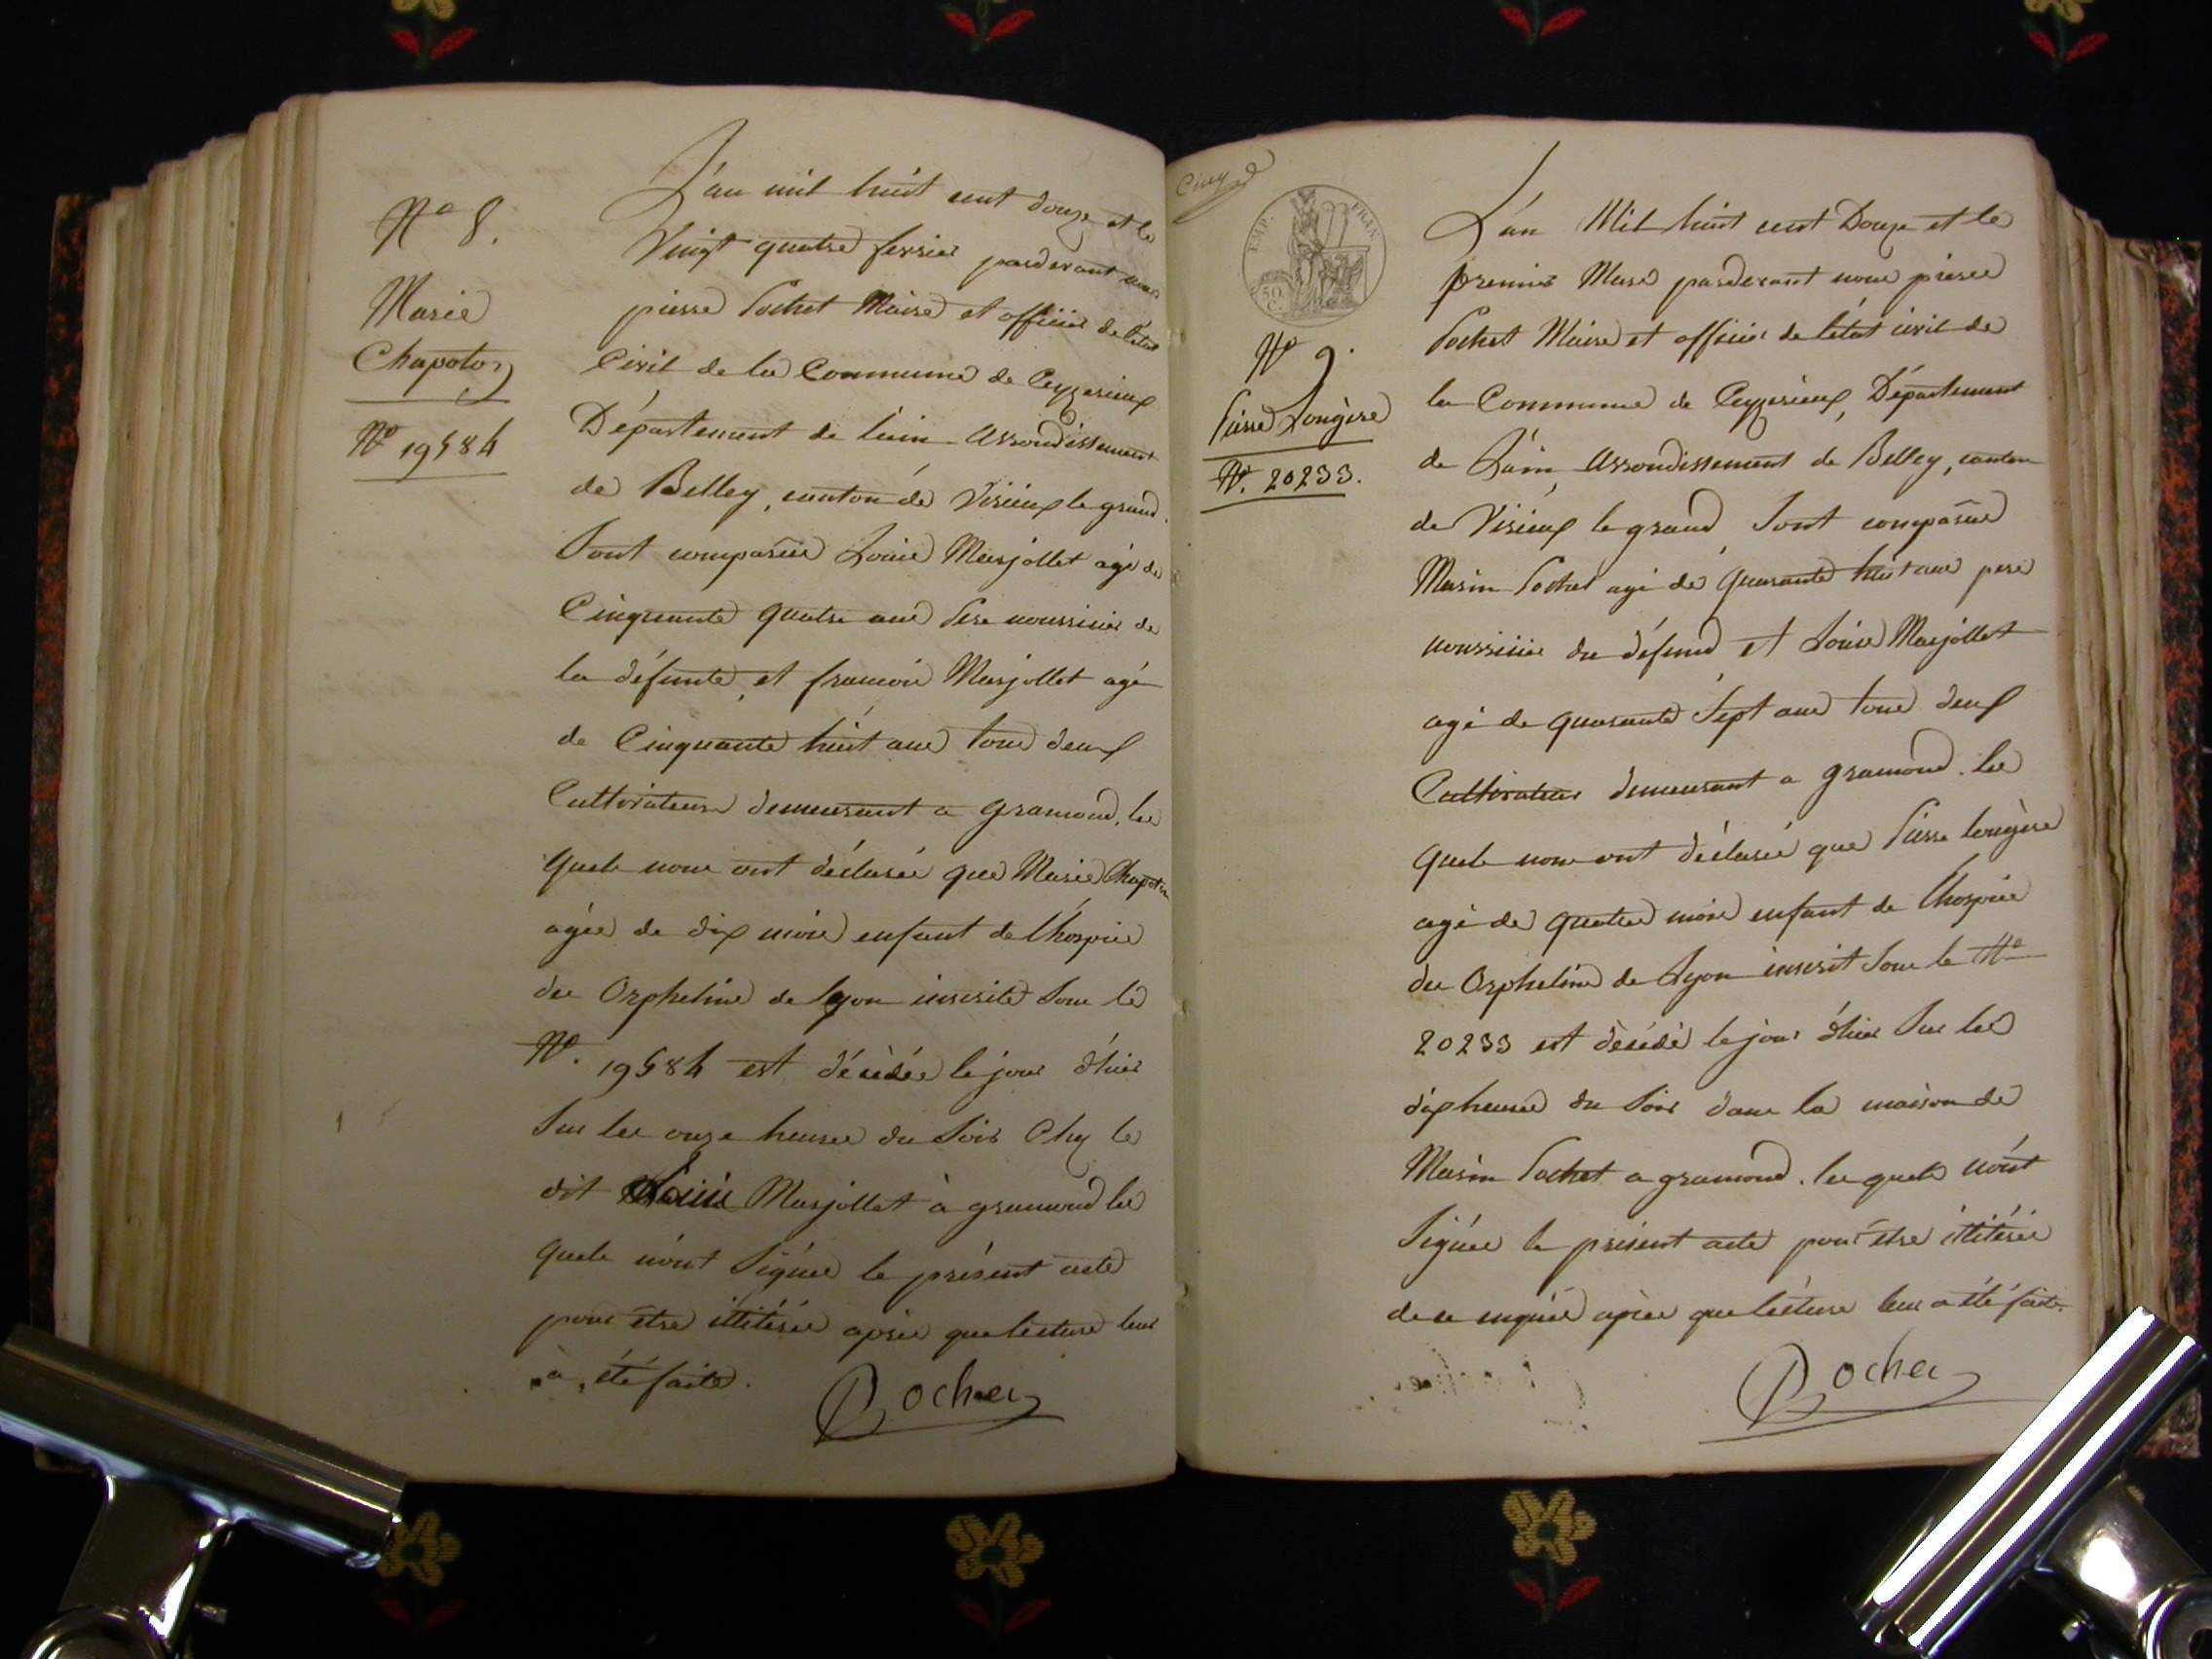 N° 8.
Marie
Chapoton
N° 19584
L'an mil huit cent douze et le
Vingt quatre fevrier pardevant nous
pierre Pochet Maire et officier de l'état
Civil de la Commune de Ceyzerieux
Département de l'ain arrondissement
de Belley, canton de Virieux le grand.
Sont comparus Louis Marjollet agé de
Cinquante quatre ans Pere nourricier de
la défunte, et francois Marjollet agé
de Cinquante huit ans tous deux
Cultivateurs demeurant a gramond. les
quels nous ont déclarés que Marie Chapoton
agée de dix mois enfant de l'hospice
des Orphelins de lyon inscrite sous le
N°. 19584 est décédée le jour d'hier
Sur les onze heures du Soir Chez le
dit Louis Marjollet à gramond les
quels n'ont Signés le présent acte
pour être illitérés après que lecture leur
à été faite.
Pochet
Cinq
EMP. FRAN.
50 C.
N° 9.
Pierre Longère
N°. 20233.
L'an Mil huit cent Douze et le
premier Mars pardevant nous pierre
Pochet Maire et officier de l'état civil de
la Commune de Ceyzerieux, Département
de L'ain, arrondissement de Belley, canton
de Virieux le grand, Sont comparus
Marin Pochet agé de quarante huit ans pere
nourricier du défund et Louis Marjollet
agé de quarante Sept ans tous deux
Cultivateurs demeurant a gramond. les
quels nous ont déclarés que Pierre longère
agé de quatre mois enfant de l'hospice
des Orphelins de Lyon inscrit Sous le N°
20233 est décédé le jour d'hier Sur les
dix heures du Soir dans la maison de
Marin Pochet a gramond. les quels n'ont
Signés le présent acte pour être illitérés
de ce enquis après que lecture leur a été faite.
Pochet